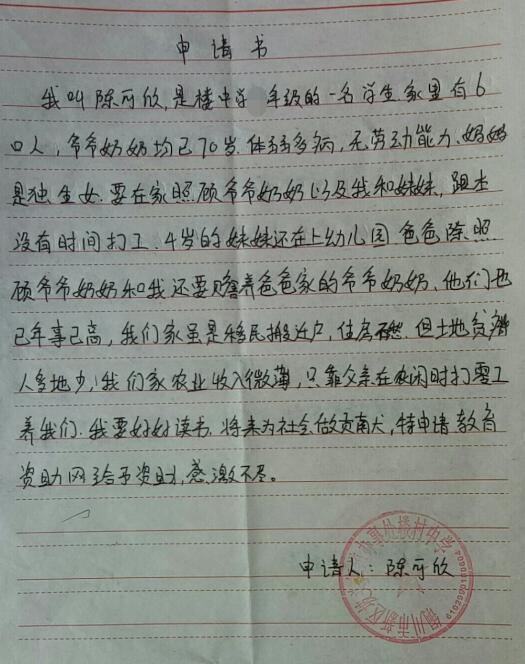 申请书
我叫陈可欣,是楼中学 年级的一名学生.家里有6
口人,爷爷奶奶均已70岁.体弱多病,无劳动能力、妈妈
是独生女.要在家照顾爷爷奶奶以及我和妹妹,跟本
没有时间打工.4岁的妹妹还在上幼儿园 爸爸除照
顾爷爷奶奶和我还要赡养爸爸家的爷爷奶奶.他们也
已年事已高,我们家虽是移民搬迁户,住房 但土地贫瘠
人多地少,我们家农业收入微薄,只靠父亲在农闲时打零工
养我们.我要好好读书.将来为社会做贡献,特申请教育
资助网给予资助,感激不尽。
申请人:陈可欣
铜川市新区 楼村中学